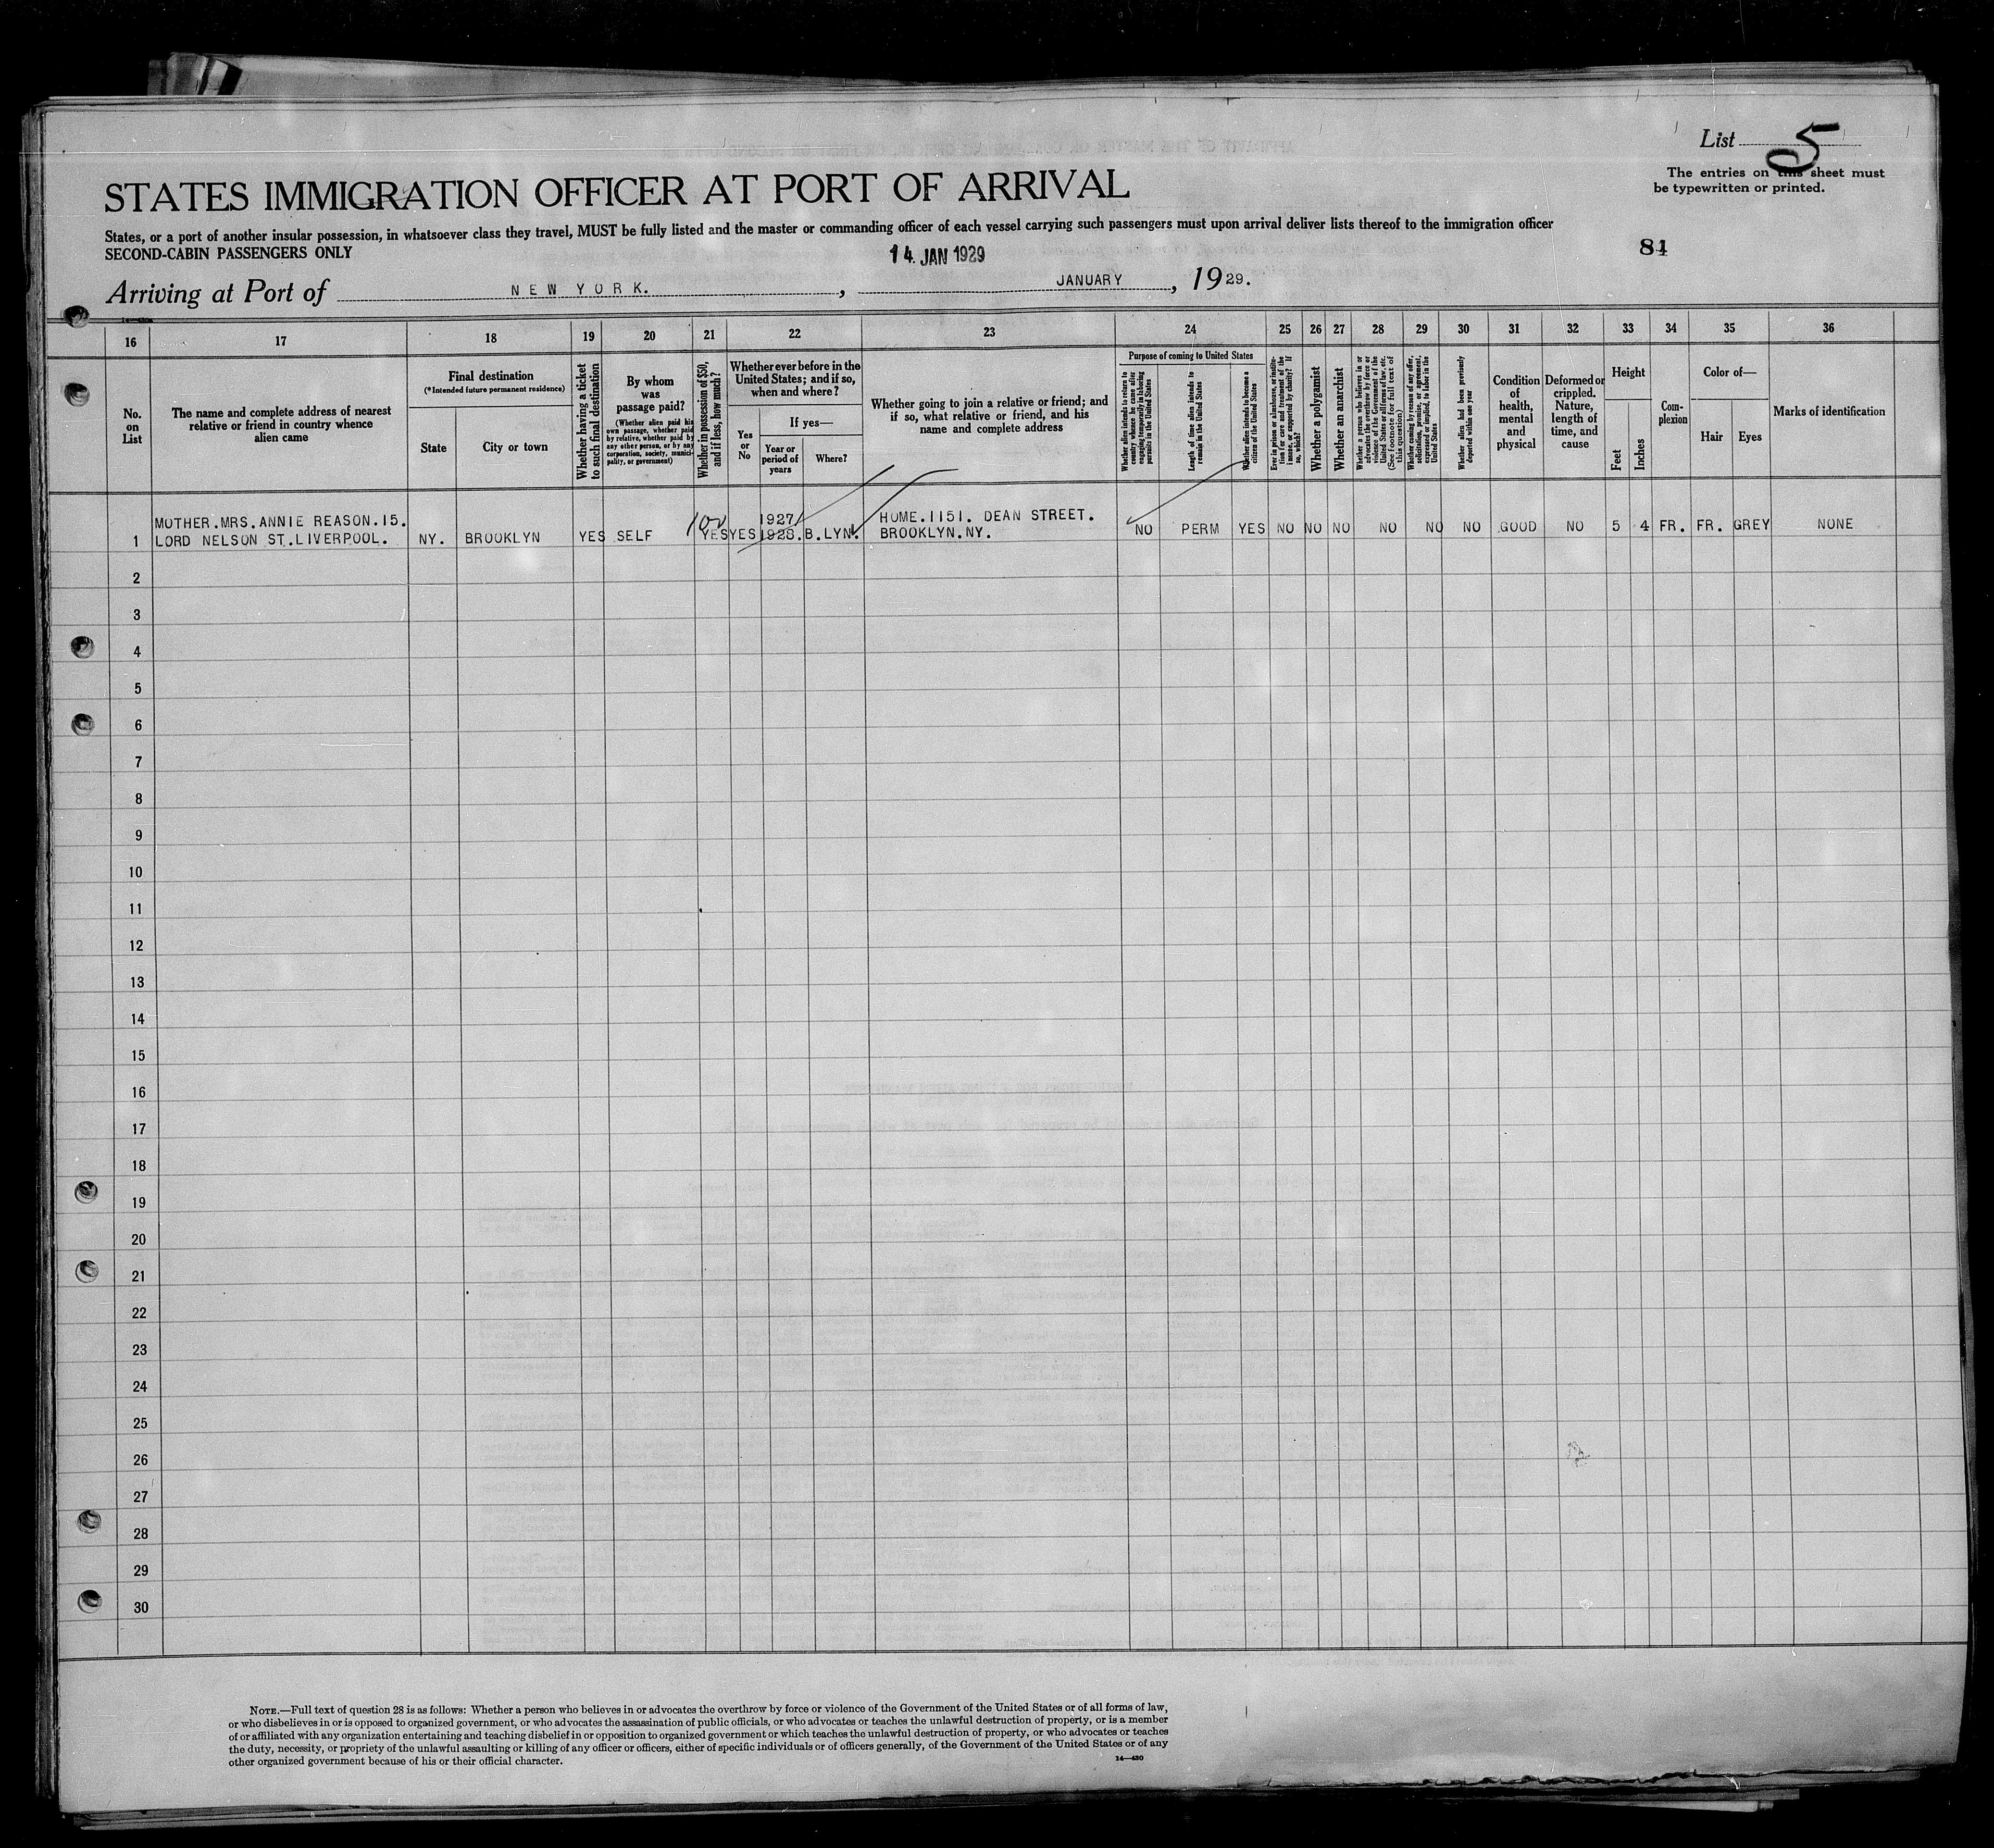 List 5
The entries on this sheet must
be typewritten or printed.
STATES IMMIGRATION OFFICER AT PORT OF ARRIVAL
States, or a port of another insular possession, in whatsoever class they travel, MUST be fully listed and the master or commanding officer of each vessel carrying such passengers must upon arrival deliver lists thereof to the immigration officer
SECOND-CABIN PASSENGERS ONLY
14. JAN 1929
84
Arriving at Port of NEW YORK. , JANUARY , 1929.
16 17 18 19 20 21 22 23 24 25 26 27 28 29 30 31 32 33 34 35 36
No.
on
List
The name and complete address of nearest
relative or friend in country whence
alien came
Final destination
(*Intended future permanent residence)
State
City or town
Whether having a ticket
to such final destination
By whom
was
passage paid?
(Whether alien paid his
own passage, whether paid
by relative, whether paid by
any other person, or by any
corporation, society, munici-
pality, or government)
Whether in possession of $50,
and if less, how much?
Whether ever before in the
United States; and if so,
when and where?
Yes
or
No
If yes—
Year or
period of
years
Where?
Whether going to join a relative or friend; and
if so, what relative or friend, and his
name and complete address
Purpose of coming to United States
Whether alien intends to return to
country whence he came after
engaging temporarily in laboring
pursuits in the United States
Length of time alien intends to
remain in the United States
Whether alien intends to become a
citizen of the United States
Ever in prison or almshouse, or institu-
tion for care and treatment of the
insane, or supported by charity? If
so, which?
Whether a polygamist
Whether an anarchist
Whether a person who believes in or
advocates the overthrow by force or
violence of the Government of the
United States or all forms of law, etc.
(See footnote for full text of
this question)
Whether coming by reason of any offer,
solicitation, promise, or agreement,
expressed or implied, to labor in the
United States
Whether alien had been previously
deported within one year
Condition
of
health,
mental
and
physical
Deformed or
crippled.
Nature,
length of
time, and
cause
Height
Feet
Inches
Com-
plexion
Color of—
Hair
Eyes
Marks of identification
MOTHER.MRS.ANNIE REASON.15. 100 1927/ HOME.1151. DEAN STREET.
1 LORD NELSON ST.LIVERPOOL. NY. BROOKLYN YES SELF YES YES 1928. B.LYN. BROOKLYN.NY. NO PERM YES NO NO NO NO NO NO GOOD NO 5 4 FR. FR. GREY NONE
2
3
4
5
6
7
8
9
10
11
12
13
14
15
16
17
18
19
20
21
22
23
24
25
26
27
28
29
30
NOTE.—Full text of question 28 is as follows: Whether a person who believes in or advocates the overthrow by force or violence of the Government of the United States or of all forms of law,
or who disbelieves in or is opposed to organized government, or who advocates the assassination of public officials, or who advocates or teaches the unlawful destruction of property, or is a member
of or affiliated with any organization entertaining and teaching disbelief in or opposition to organized government or which teaches the unlawful destruction of property, or who advocates or teaches
the duty, necessity, or propriety of the unlawful assaulting or killing of any officer or officers, either of specific individuals or of officers generally, of the Government of the United States or of any
other organized government because of his or their official character.
14—430